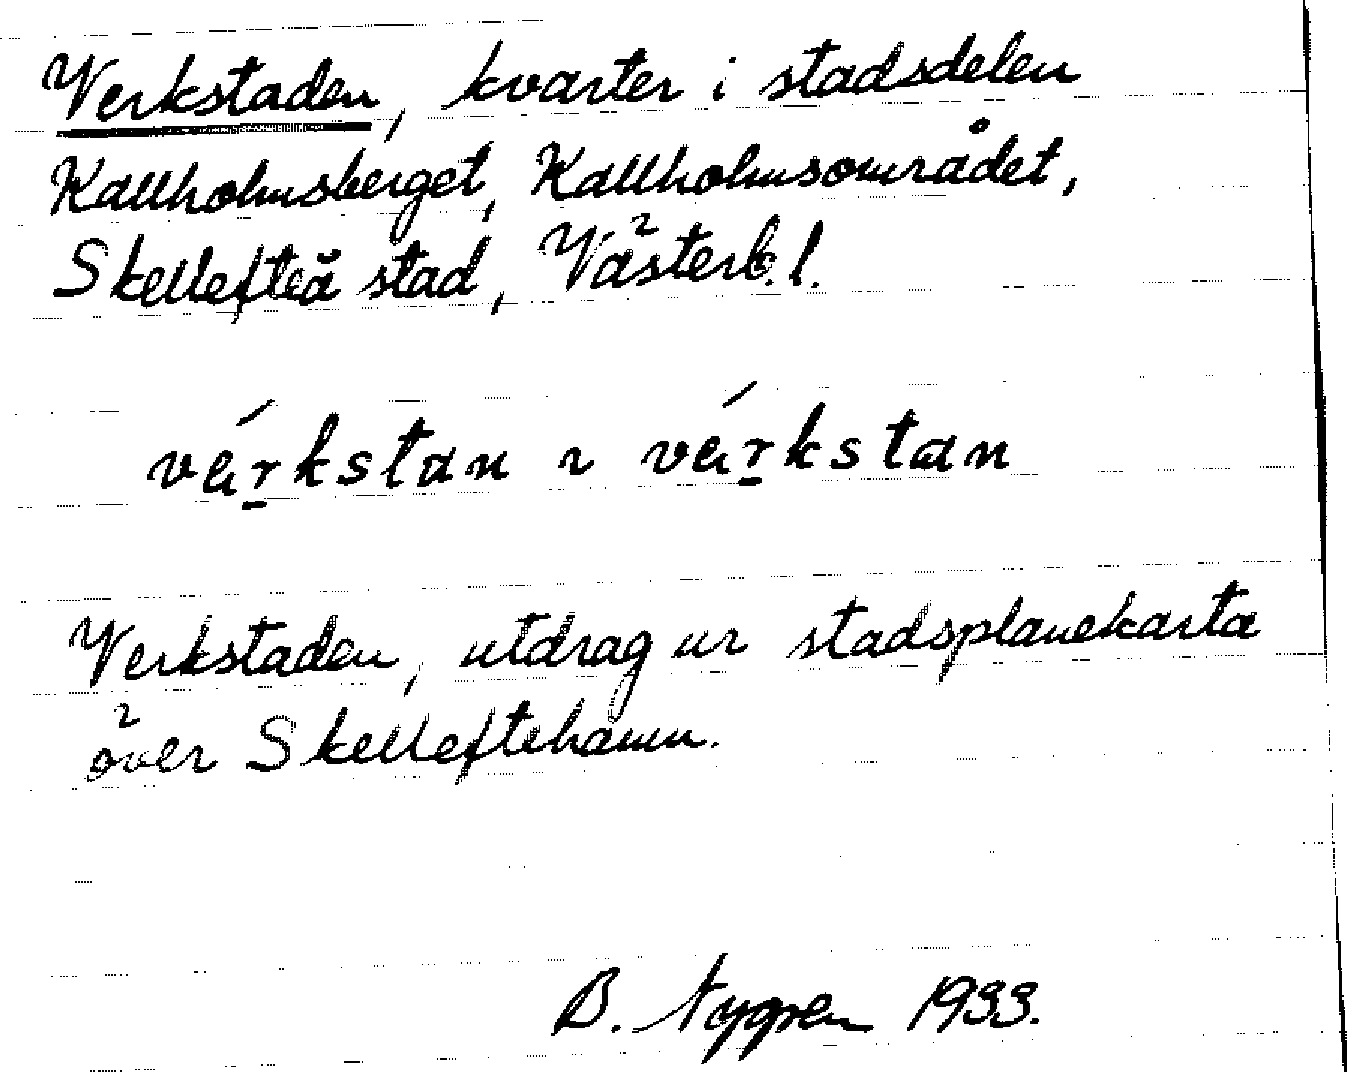 Verkstaden, kvarter i stadsdelen
Kallholmsberget, Kallholmsområdet,
Skellefteå stad, Västerb. l.
värkstan ~ värkstan
Verkstaden, utdrag ur stadsplanekarta
över Skelleftehamn.
B. Nygren 1933.